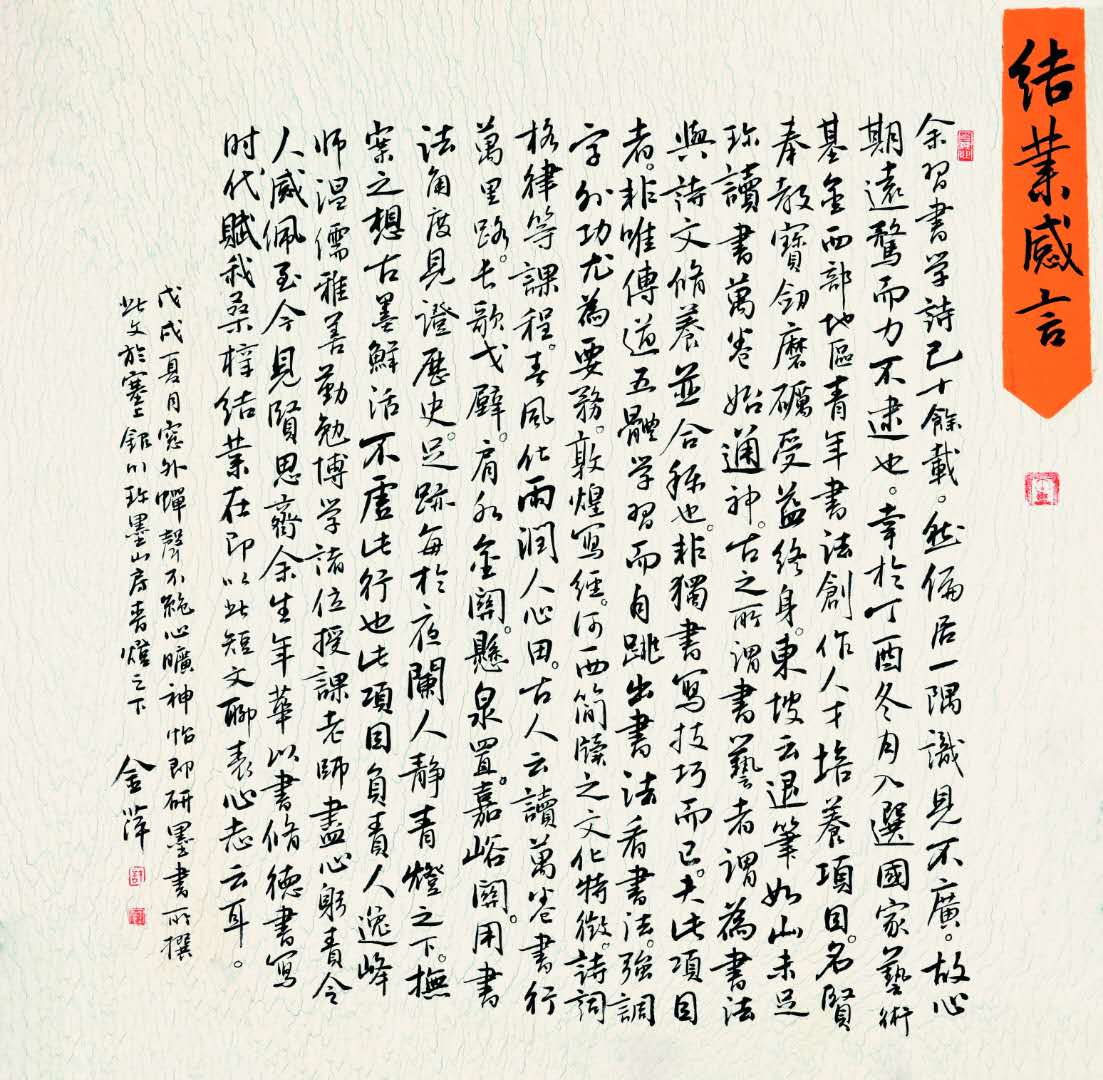 结業感言
余習書学詩已十餘載。然偏居一隅識見不廣。故心
期遠騖而力不逮也。幸於丁酉冬月入選國家藝術
基金西部地區青年書法創作人才培養項目。名賢
奉教寶劒磨礪受益終身。東坡云退筆如山未足
珎讀書萬卷始通神。古之所謂書藝者謂為書法
與詩文脩養並合稱也。非獨書寫技巧而已。夫此項目
者。非唯傳道五體学習而自跳出書法看書法。強調
字外功尤為要務。敦煌寫經。河西簡牘之文化特徵。詩詞
格律等課程。春風化雨潤人心田。古人云讀萬卷書行
萬里路。長歌戈壁。肩水金關。懸泉置。嘉峪關。用書
法角度見證歷史。足跡每於夜闌人静青燈之下。撫
案之想古墨鮮活不虛此行也此項目負責人逸峰
师温儒雅善勤勉博学諸位授課老師盡心躬責令
人感佩至今見賢思齊余生年華以書脩德書寫
时代賦我桑梓结業在即以此短文聊表心志云耳。
戊戌夏月窓外蟬聲不絶心曠神怡即研墨書所撰
此文於塞上銀川珎墨山房青燈之下
金萍